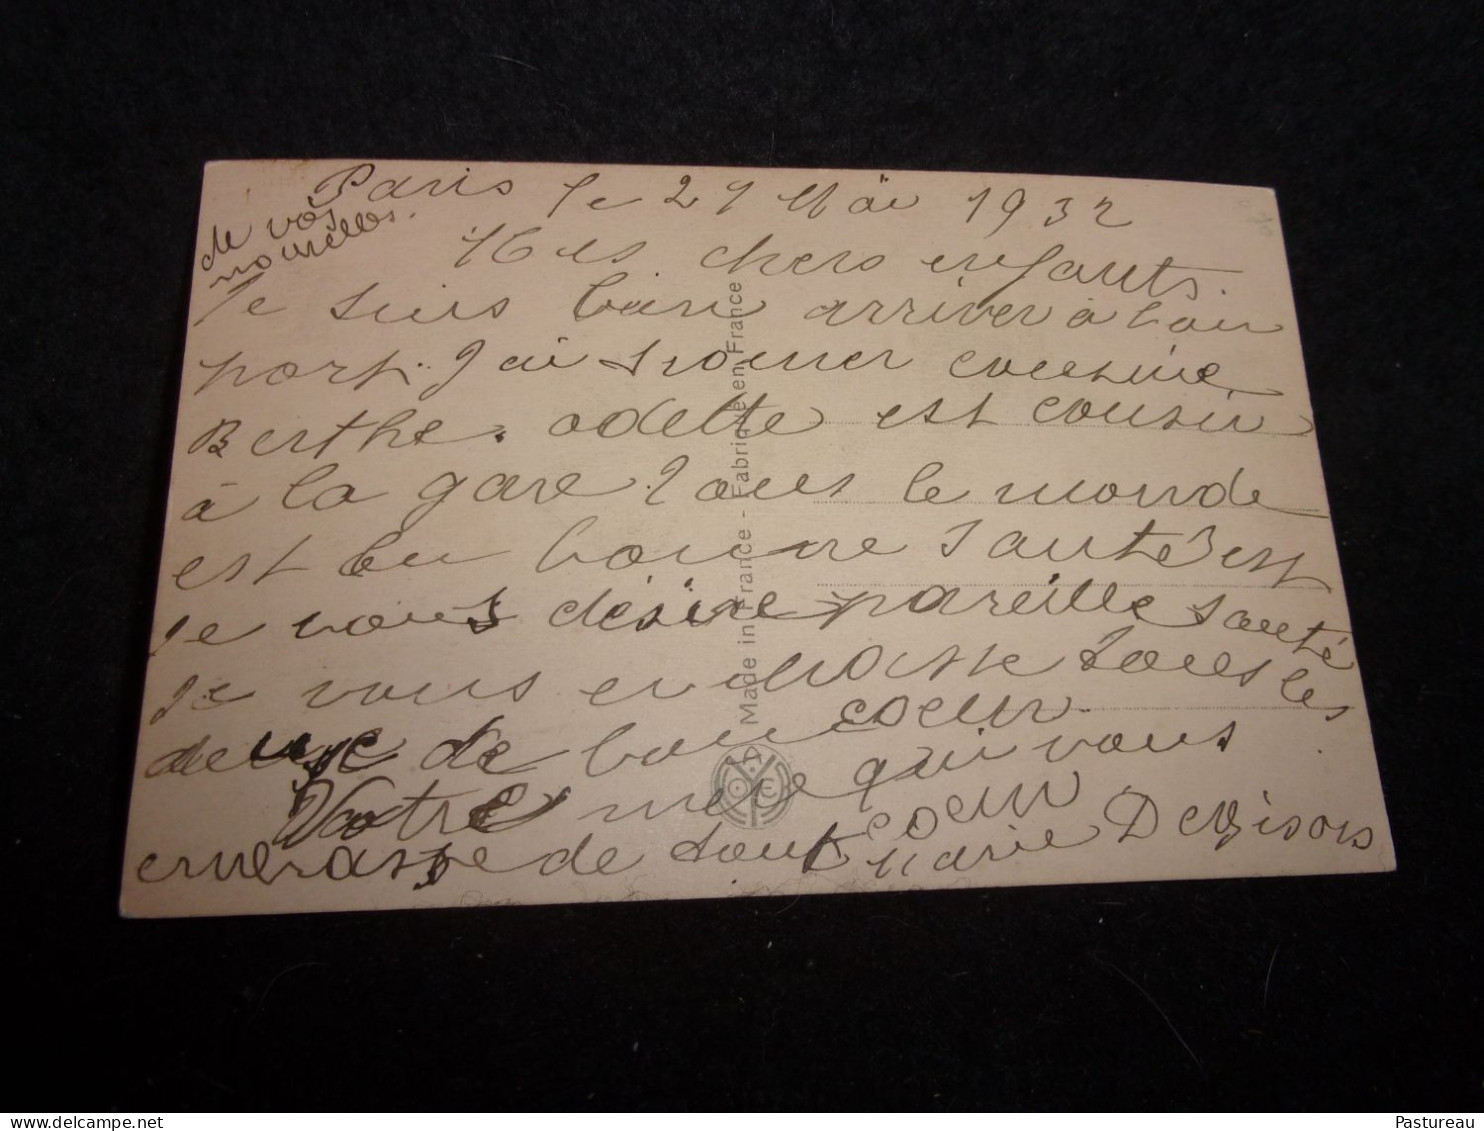 Paris le 29 Mai 1932
de vos
nouvelles.
Mes chers enfants.
Je suis bien arriver à bon
port. J ai trouver cousine
Berthe. odette est cousin
à la gare Tous le monde
est en bonne Santé est
Je vous désire pareille santé
Je vous embrasse tous les
deuxe de bon coeur
Votre mère qui vous
embrasse de tout coeur
Marie
Made in France - Fabriqué en France
delcampe.net
Pastureau